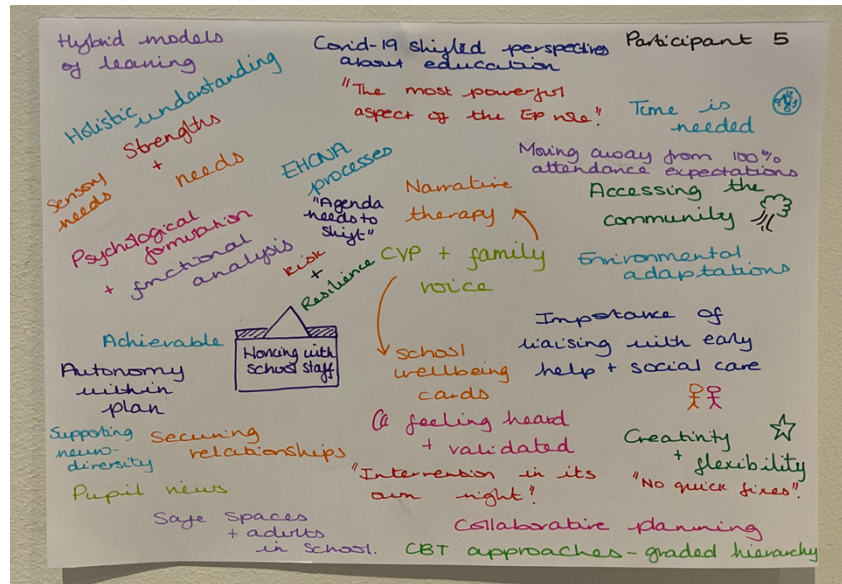 Hybrid models
of learning
Covid-19 shifted perspectives
about education
Participant 5
"The most powerful
aspect of the EP role".
Time is
needed
Holistic understanding
Strengths
+
needs
Sensory
needs
EHCNA
processes
Moving away from 100%
attendance expectations
"Agenda
needs to
shift"
Narrative
therapy
Accessing the
community
Psychological
formulation
+ functional
analysis
Risk
+
Resilience
CYP + family
voice
Environmental
adaptations
Achievable
Working with
school staff
Importance of
liaising with early
help + social care
Autonomy
within
plan
School
wellbeing
cards
feeling heard
+ validated
Creativity
+ flexibility
Supporting
neuro-
diversity
Securing
relationships
"Intervention in its
own right".
"No quick fixes".
Pupil views
Safe spaces
+ adults
in school.
Collaborative planning
CBT approaches - graded hierarchy